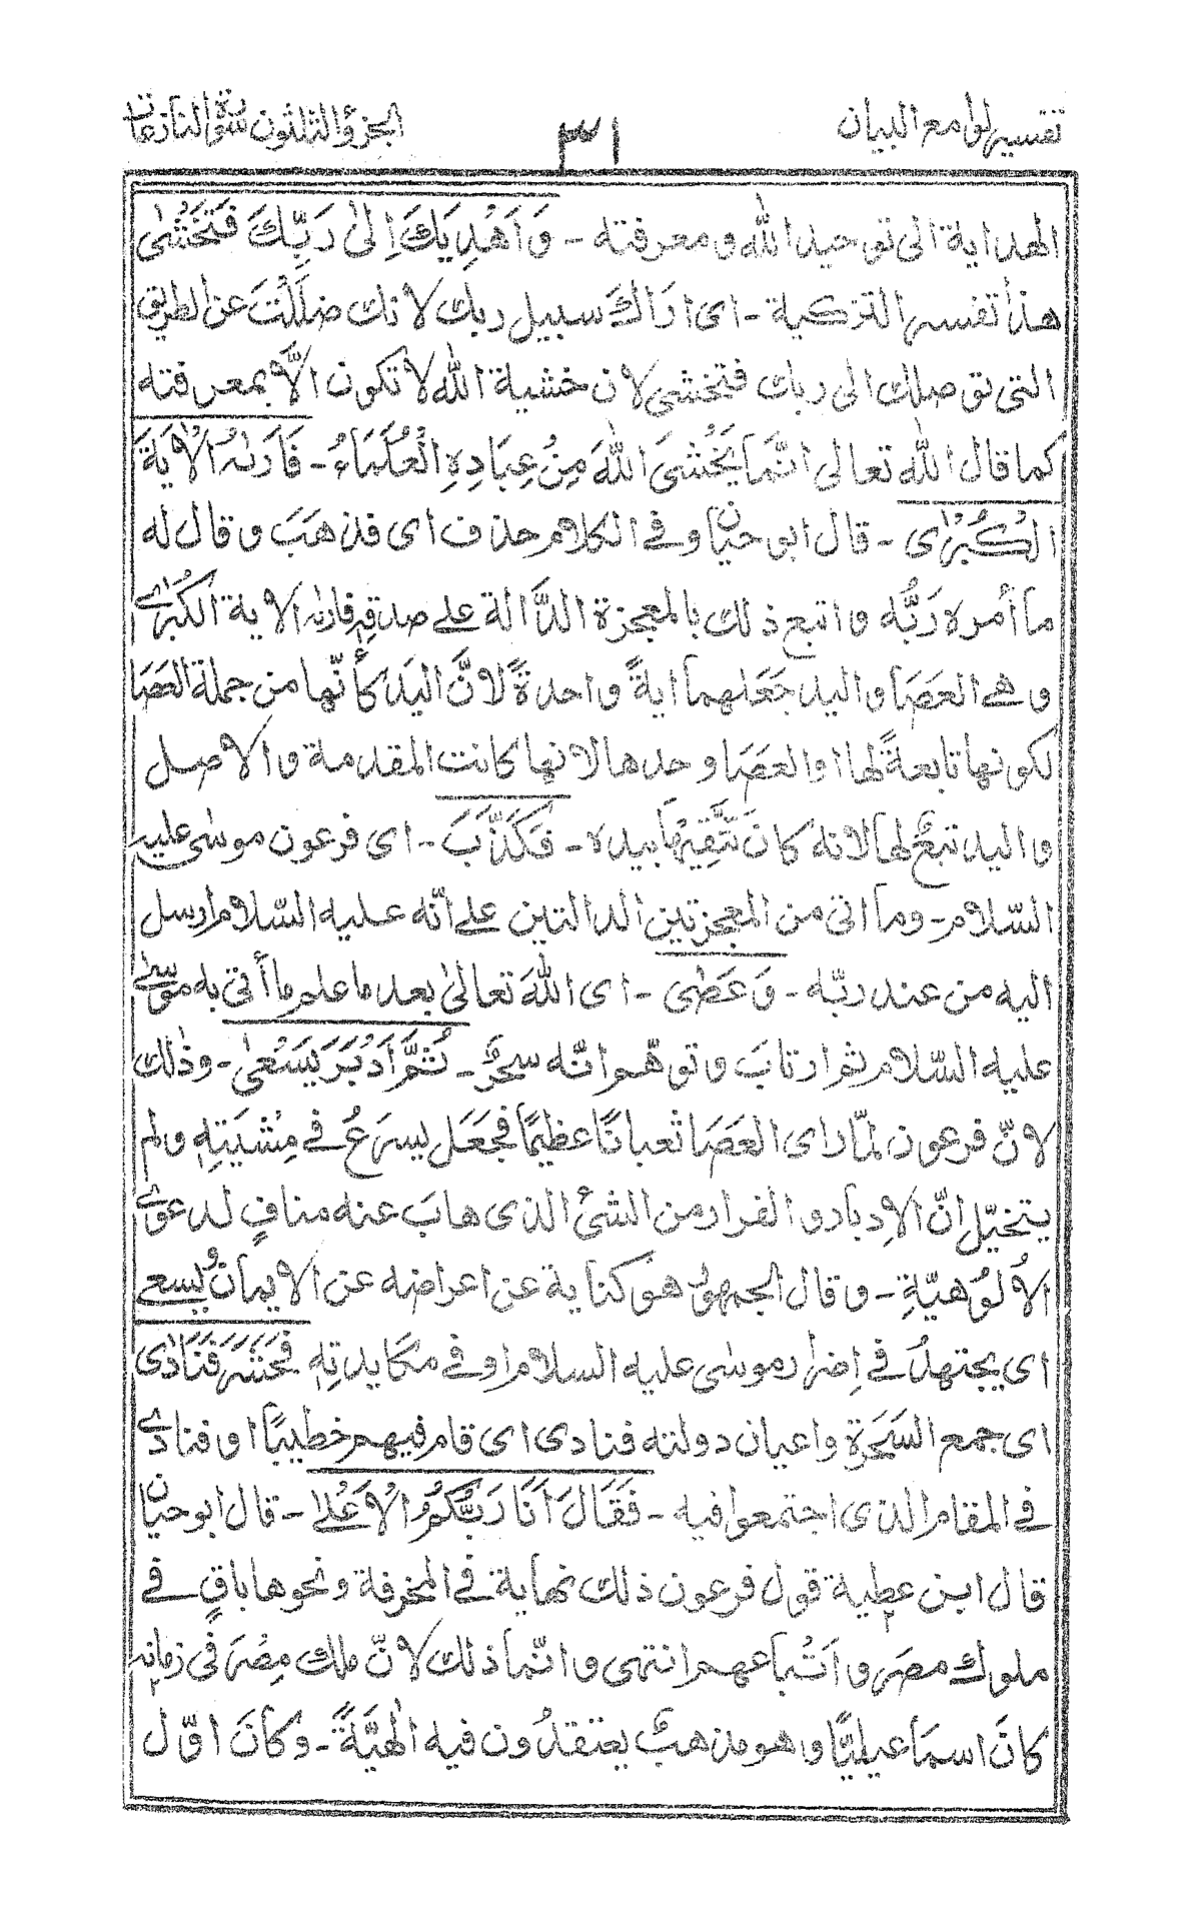 تفسير لوامع البيان ٣١ الجزؤ الثلثون سورة النازعات
الهداية الى توحيد الله و معرفته - وَ اَهْدِيَكَ اِلىٰ رَبِّكَ فَتَخْشٰى
هذا تفسير التزكية - اى ارَاكَ سبيل ربك لانك ضلَلْتَ عن الطريق
التى توصلك الى ربك فتخشى لان خشية الله لا تكون الَّا بمعرفته
كما قال الله تعالى انَّما يَخْشىَ اللهَ مِنْ عِبَادِهِ الْعُلَمَاءُ - فَاَرٰىهُ الْاٰيَةَ
الْكُبْرٰى - قال ابو حيان و فے الكلام حذف اى فذهَبَ و قال له
ما أمره رَبُّه و اتبع ذلك بالمعجزة الدَّالة علے صدقه فارٰىه الاية الكُبْرٰے
و هے العَصَا و اليد جَعَلهما ايةً واحدةً لانَّ اليَدَ كأنّها من جملة العَصَا
لكونها تابعةً لها او العَصَا وحدها لانها كانت المقدمة و الاصل
و اليد تبَعٌ لها لانه كانَ يتَّقِيْهَا بيده - فَكَذَّبَ - اى فرعون موسٰى عليه
السّلام - و ما اتى من المعجزتين الدالتين علے انّه عليه السّلام ارسل
اليه من عند ربّه - وَ عَصٰى - اى اللهَ تعالىٰ بعد ما علم ما أتى به موسٰے
عليه السّلام ثم ارتابَ و توهّم انّه سحرٌ - ثُمَّ اَدْبَرَ يَسْعٰى - و ذٰلك
لانّ فرعون لمّا راى العَصَا ثعبانًا عظيمًا فجَعَل يسرَعُ فے مِشْيَتِهٖ و لم
يتخيّل انّ الاِدبار و الفرار من الشئ الذى هابَ عنه منافٍ لدعوٰے
الاُلُوْهيّةِ - و قال الجمهور هو كناية عن اعراضه عن الايمان و يسعے
اى يجتهدُ فے اِضرار موسٰى عليه السلام او فے مكايدتِهٖ فَحَشَرَ فَنَادٰى
اى جمع السَحَرَة و اعيان دولته فنادى اى قام فيهم خطيبًا او فنادٰے
فے المقام الذى اجتمعوا فيه - فَقَالَ اَنَا رَبُّكُمُ الْاَعْلٰے - قال ابو حيان
قال ابن عطية قول فرعون ذلك نهاية فے المخرفة و نحوها باقٍ فے
ملوك مصر و اَتْباعهم انتهى و انّما ذلك لانّ ملك مِصْرَ فى زمانه
كانَ اسماعيليًّا و هو مذهبٌ يعتقدُون فيه اِلٰهيَّةً - و كانَ اوّل